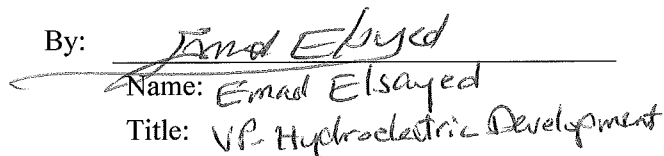 By: Emad Elsayed
Name: Emad Elsayed
Title: VP- Hydroelectric Development